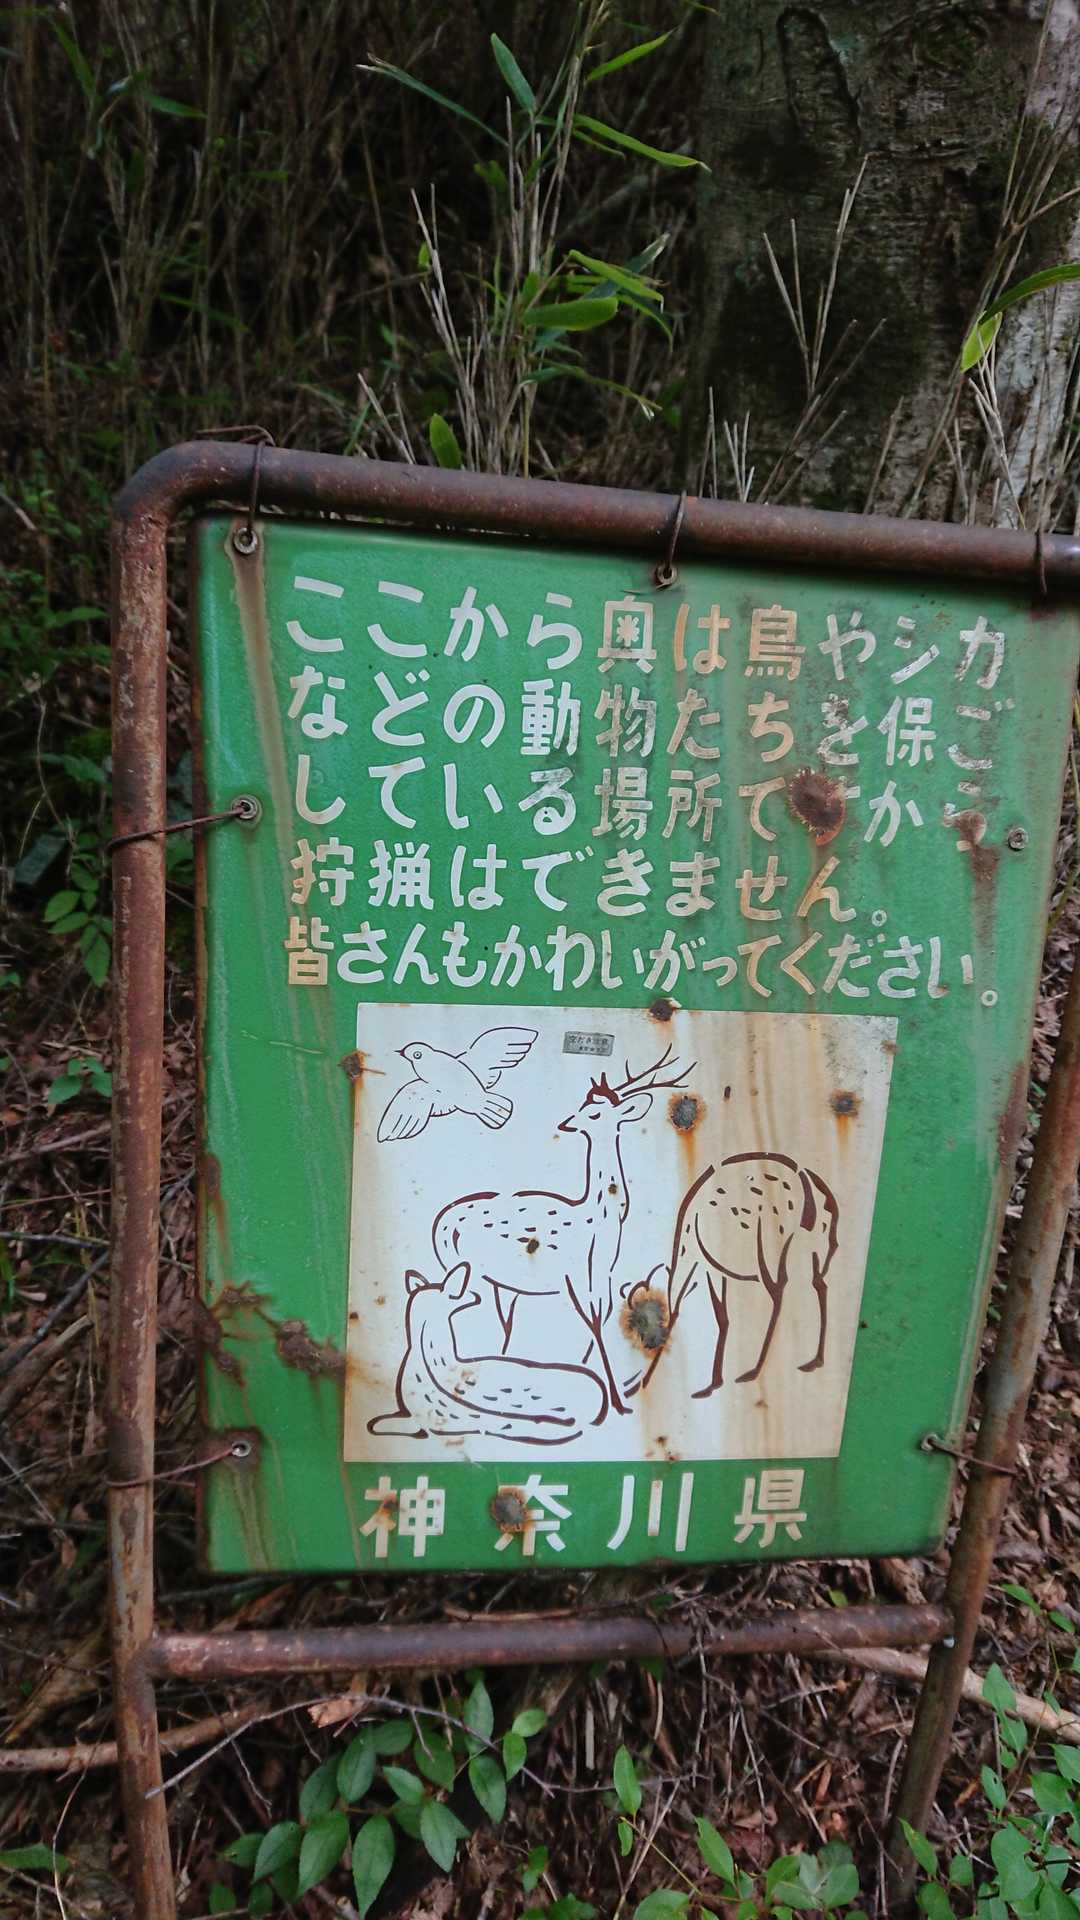 ここから奥は鳥やシカ
などの動物たちを保ご
している場所ですから、
狩猟はできません。
皆さんもかわいがってください。
神奈川県